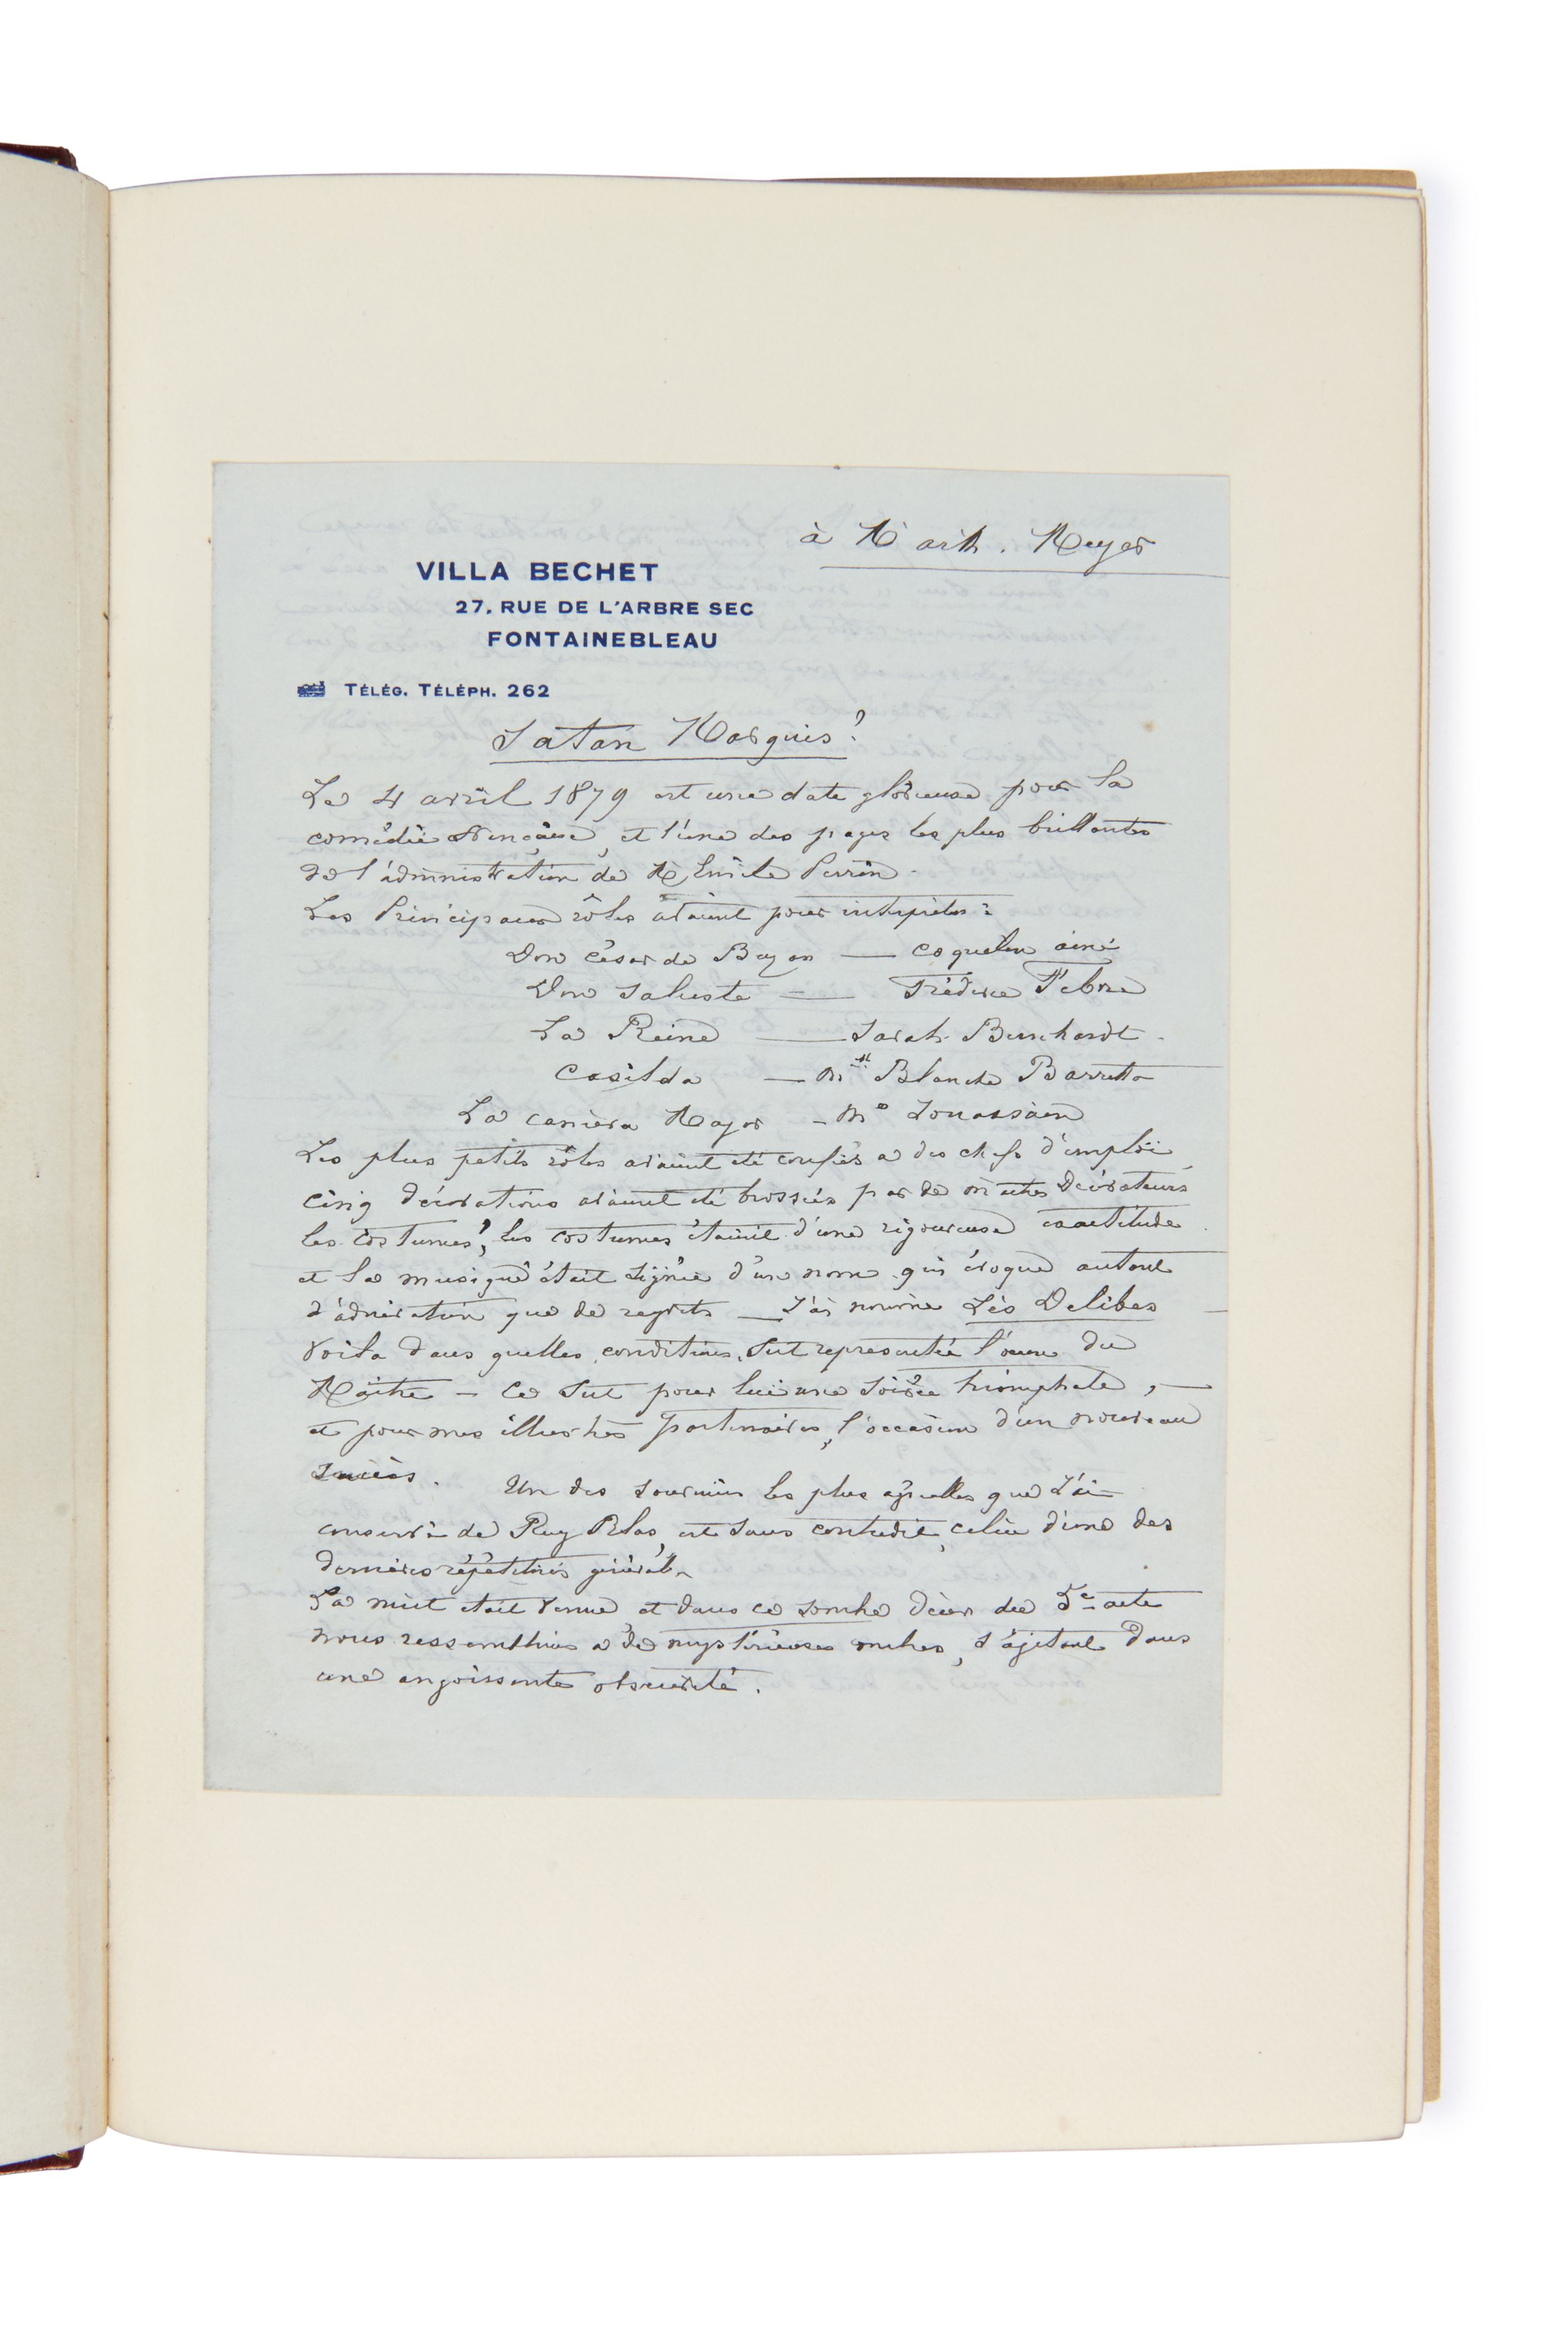 à M Arth. Meyer
VILLA BECHET
27, RUE DE L'ARBRE SEC
FONTAINEBLEAU
TÉLÉG. TÉLÉPH. 262
Satan Marquis!
Le 4 avril 1879 est une date glorieuse pour la
comédie Française, et l'une des pages les plus brillantes
de l'administration de M Emile Perrin.
Les Principaux rôles avaient pour interprètes :
Don César de Bazan — Coquelin ainé
Don Saluste — Frédéric Febvre
La Reine — Sarah Bernhardt.
Casilda — Mlle Blanche Barretta
La Mayor — Me Jouassain
Les plus petits rôles avaient été confiés a des chefs d'emploi
cinq décorations avaient été brossées par de Décorateurs
les costumes, les costumes étaient d'une rigoureuse exactitude
et la musique était signée d'un nom qui évoque autant
d'admiration que de regrets — J'ai nommé Léo Delibes
Voila dans quelles conditions fut representée l'œuvre du
Maître — Ce fut pour lui une soirée triomphale, —
et pour mes illustres partenaires, l'occasion d'un nouveau
succès. Un des souvenirs les plus que J'ai
conservé de Ruy Blas, est sans contredit, celui d'une des
dernières répétitions général
La nuit etait venue, et dans ce sombre décor du 5e acte
nous ressemblions a de mystérieuses ombres, s'agitant dans
une angoissante obscurité.